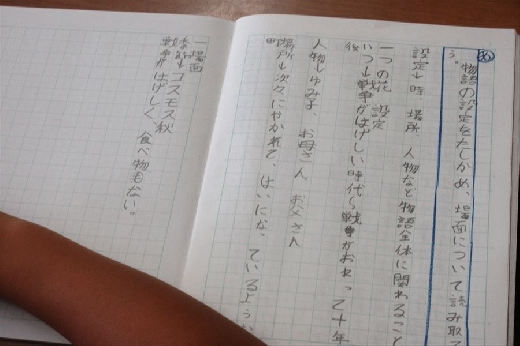 め 物語の設定をたしかめ、場面について読み取ろ
う。
設定→時 場所 人物など物語全体に関わること
一つの花 設定
いつ→戦争がはげしい時代〜戦争がおわって十年
後
人物→ゆみ子、お母さん お父さん
場所→次々にやかれて、はいになっているような
町
一場面
季節→コスモス秋
戦争がはげしく 食べ物もない。